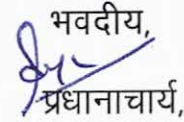 भवदीय,
प्रधानाचार्य,